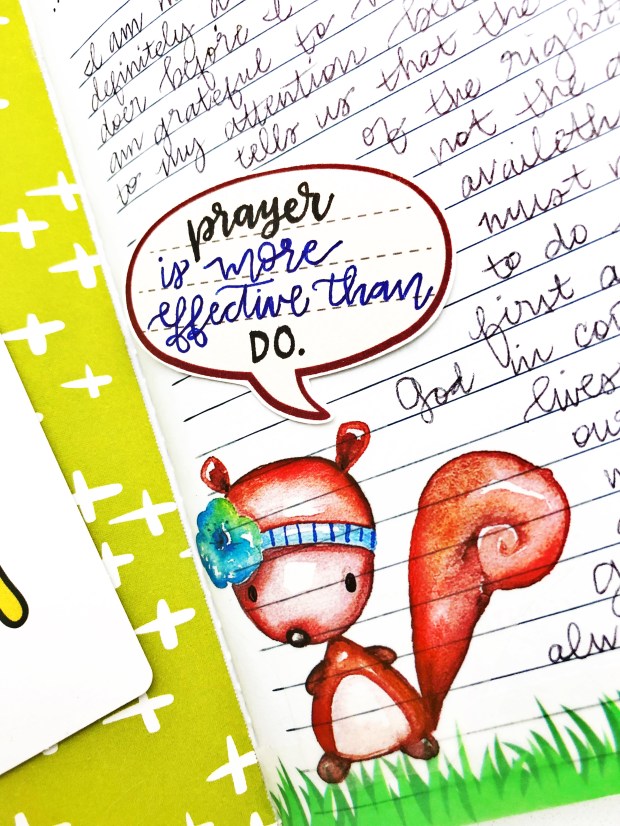 I am
definitely a
doer before I
am grateful to
to my attention
tells us that the
of the right
not the
must
to do
first a
God in
lives
our
prayer
is more
effective than
DO.